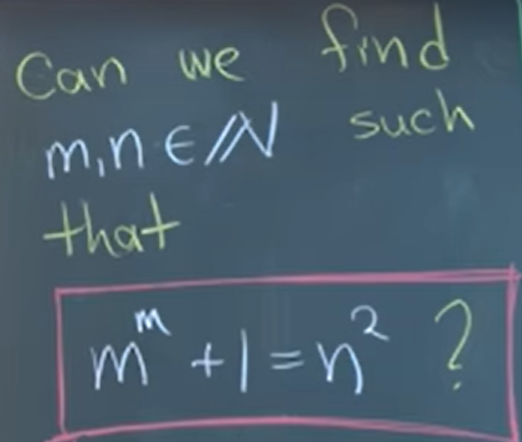 Can we find
m,n ∈ ℕ such
that
m^m + 1 = n^2 ?